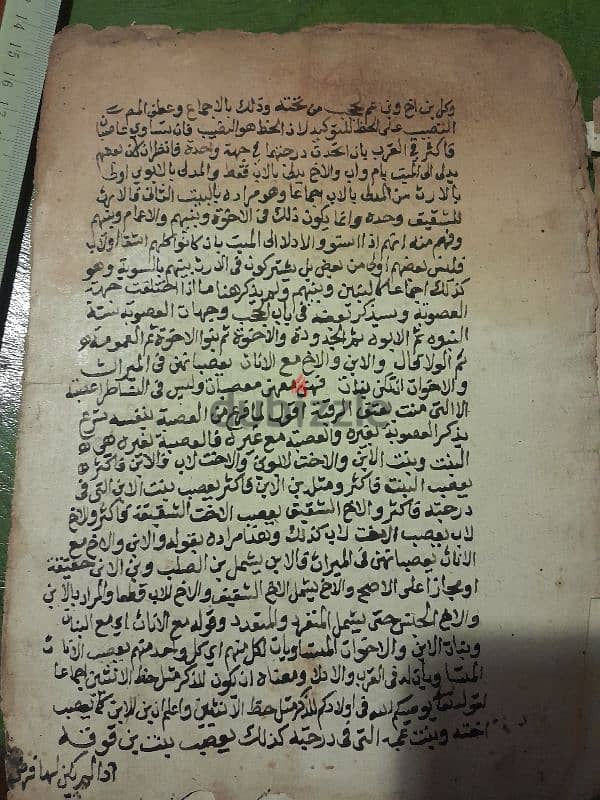 14 15 16 17
وكل بن اخ وبن عم يحجب من تحته وذلك بالاجماع وعطف المصـ
النصيب على الحظ للتوكيد لان الحظ هو النصيب فان تساوى عاصبان
فاكثر في القرب بان اتحدت درجتهما في جهة واحدة فانظر ان كان بعضهم
يدلى الى الميت بام واب والاخر يدلى بالاب فقط والمدلى بالابوين اولى
بالارث من المدلى بالاب اجماعا وهو مراده بالبيت الثانى فالارث
للشقيق وحده وانما يكون ذلك في الاخوة وبنيهم والاعمام وبنيهم
وفهم منه انهم اذا استووا في الادلا الى الميت بان كانوا كلهم اشقا او لاب
فليس بعضهم اولى من بعض بل يشتركون في الارث بينهم بالسوية وهو
كذلك اجماعا كابنين وبنيهم ولم يذكر هنا ما اذا اختلفت جهة
العصوبة وسيذكر بعضه في باب الحجب وجهات العصوبة ستة
البنوه ثم الابوه ثم الجدودة والاخوة ثم بنوا الاخوة ثم العمومة
ثم الولا قال والابن والاخ مع الاناث يعصبانهن في الميراث
والاخوات ان تكن بنات فهن معهن معصبات وليس في النساطرا عصبة
الا التى منت بعتق الرقبة اقول لما فرغ من العصبة بنفسه شرع
يذكر العصوبة لغيره والعصبة مع غيره فالعصبة بغيره هي
البنت وبنت الابن والاخت للابوين والاخت لاب فالابن فاكثر
يعصب البنت فاكثر ومثله بن الابن فاكثر يعصب بنت الابن التى في
درجته فاكثر والاخ الشقيق يعصب الاخت الشقيقة فاكثر والاخ
لاب يعصب الاخت لاب كذلك وهذا مراده بقوله والابن والاخ مع
الاناث يعصبانهن في الميراث فالابن يشمل بن الصلب وبن الابن حقيقة
او مجازا على الاصح والاخ يشمل الاخ الشقيق والاخ للاب قطعا والمراد بالابن
والاخ الجنس حتى يشمل المنفرد والمتعدد وقوله مع الاناث اى مع البنات
وبنات الابن والاخوات المتساويات لكل منهم اى كل واحد منهم يعصب الاناث
المتساويات له في القرب والادلا ومعناه ان يكون للذكر مثل حظ الانثيين اجماعا
لقوله تعالى يوصيكم الله في اولادكم للذكر مثل حظ الانثيين واعلم ان بن الابن كما يعصب
اخته وبنت عمه التى في درجته كذلك يعصب بنت بن فوقه
اذا لم يكن لها فرض
dubizzle